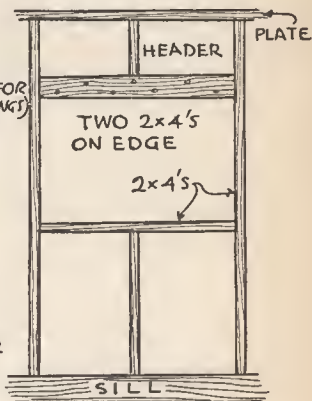 PLATE
HEADER
FOR
NGS)
TWO 2×4'S
ON EDGE
2×4'S
SILL